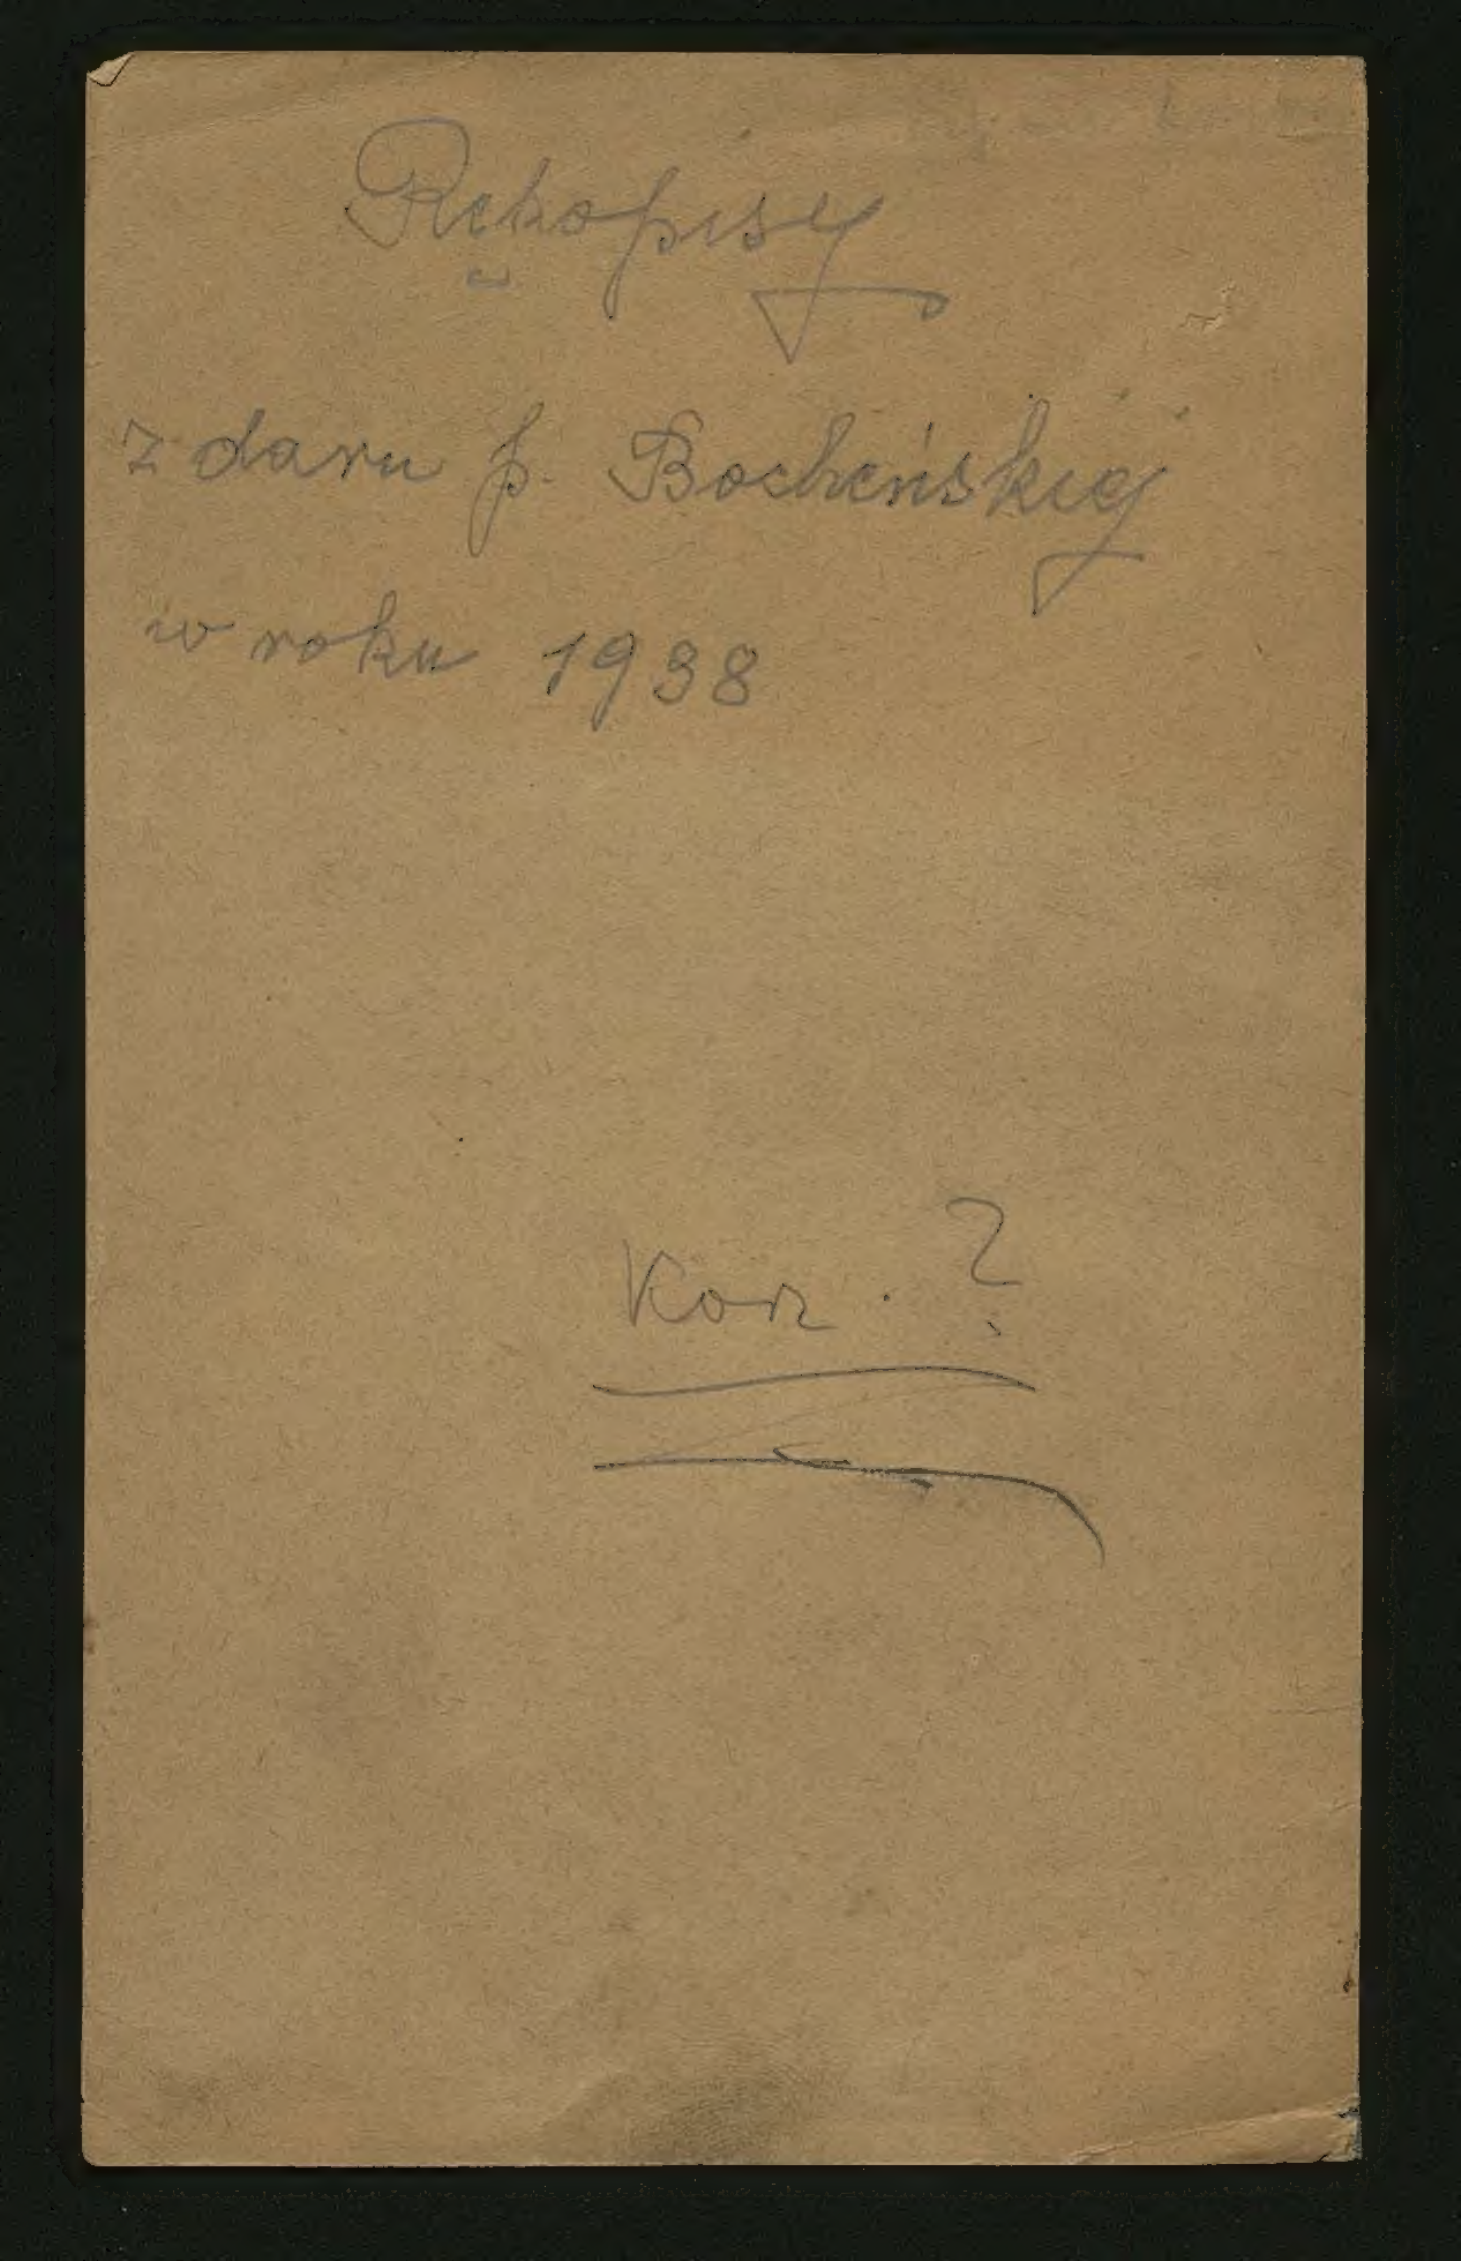 Rękopisy
z daru p. Bocheńskiej
w roku 1938
Korz. ?